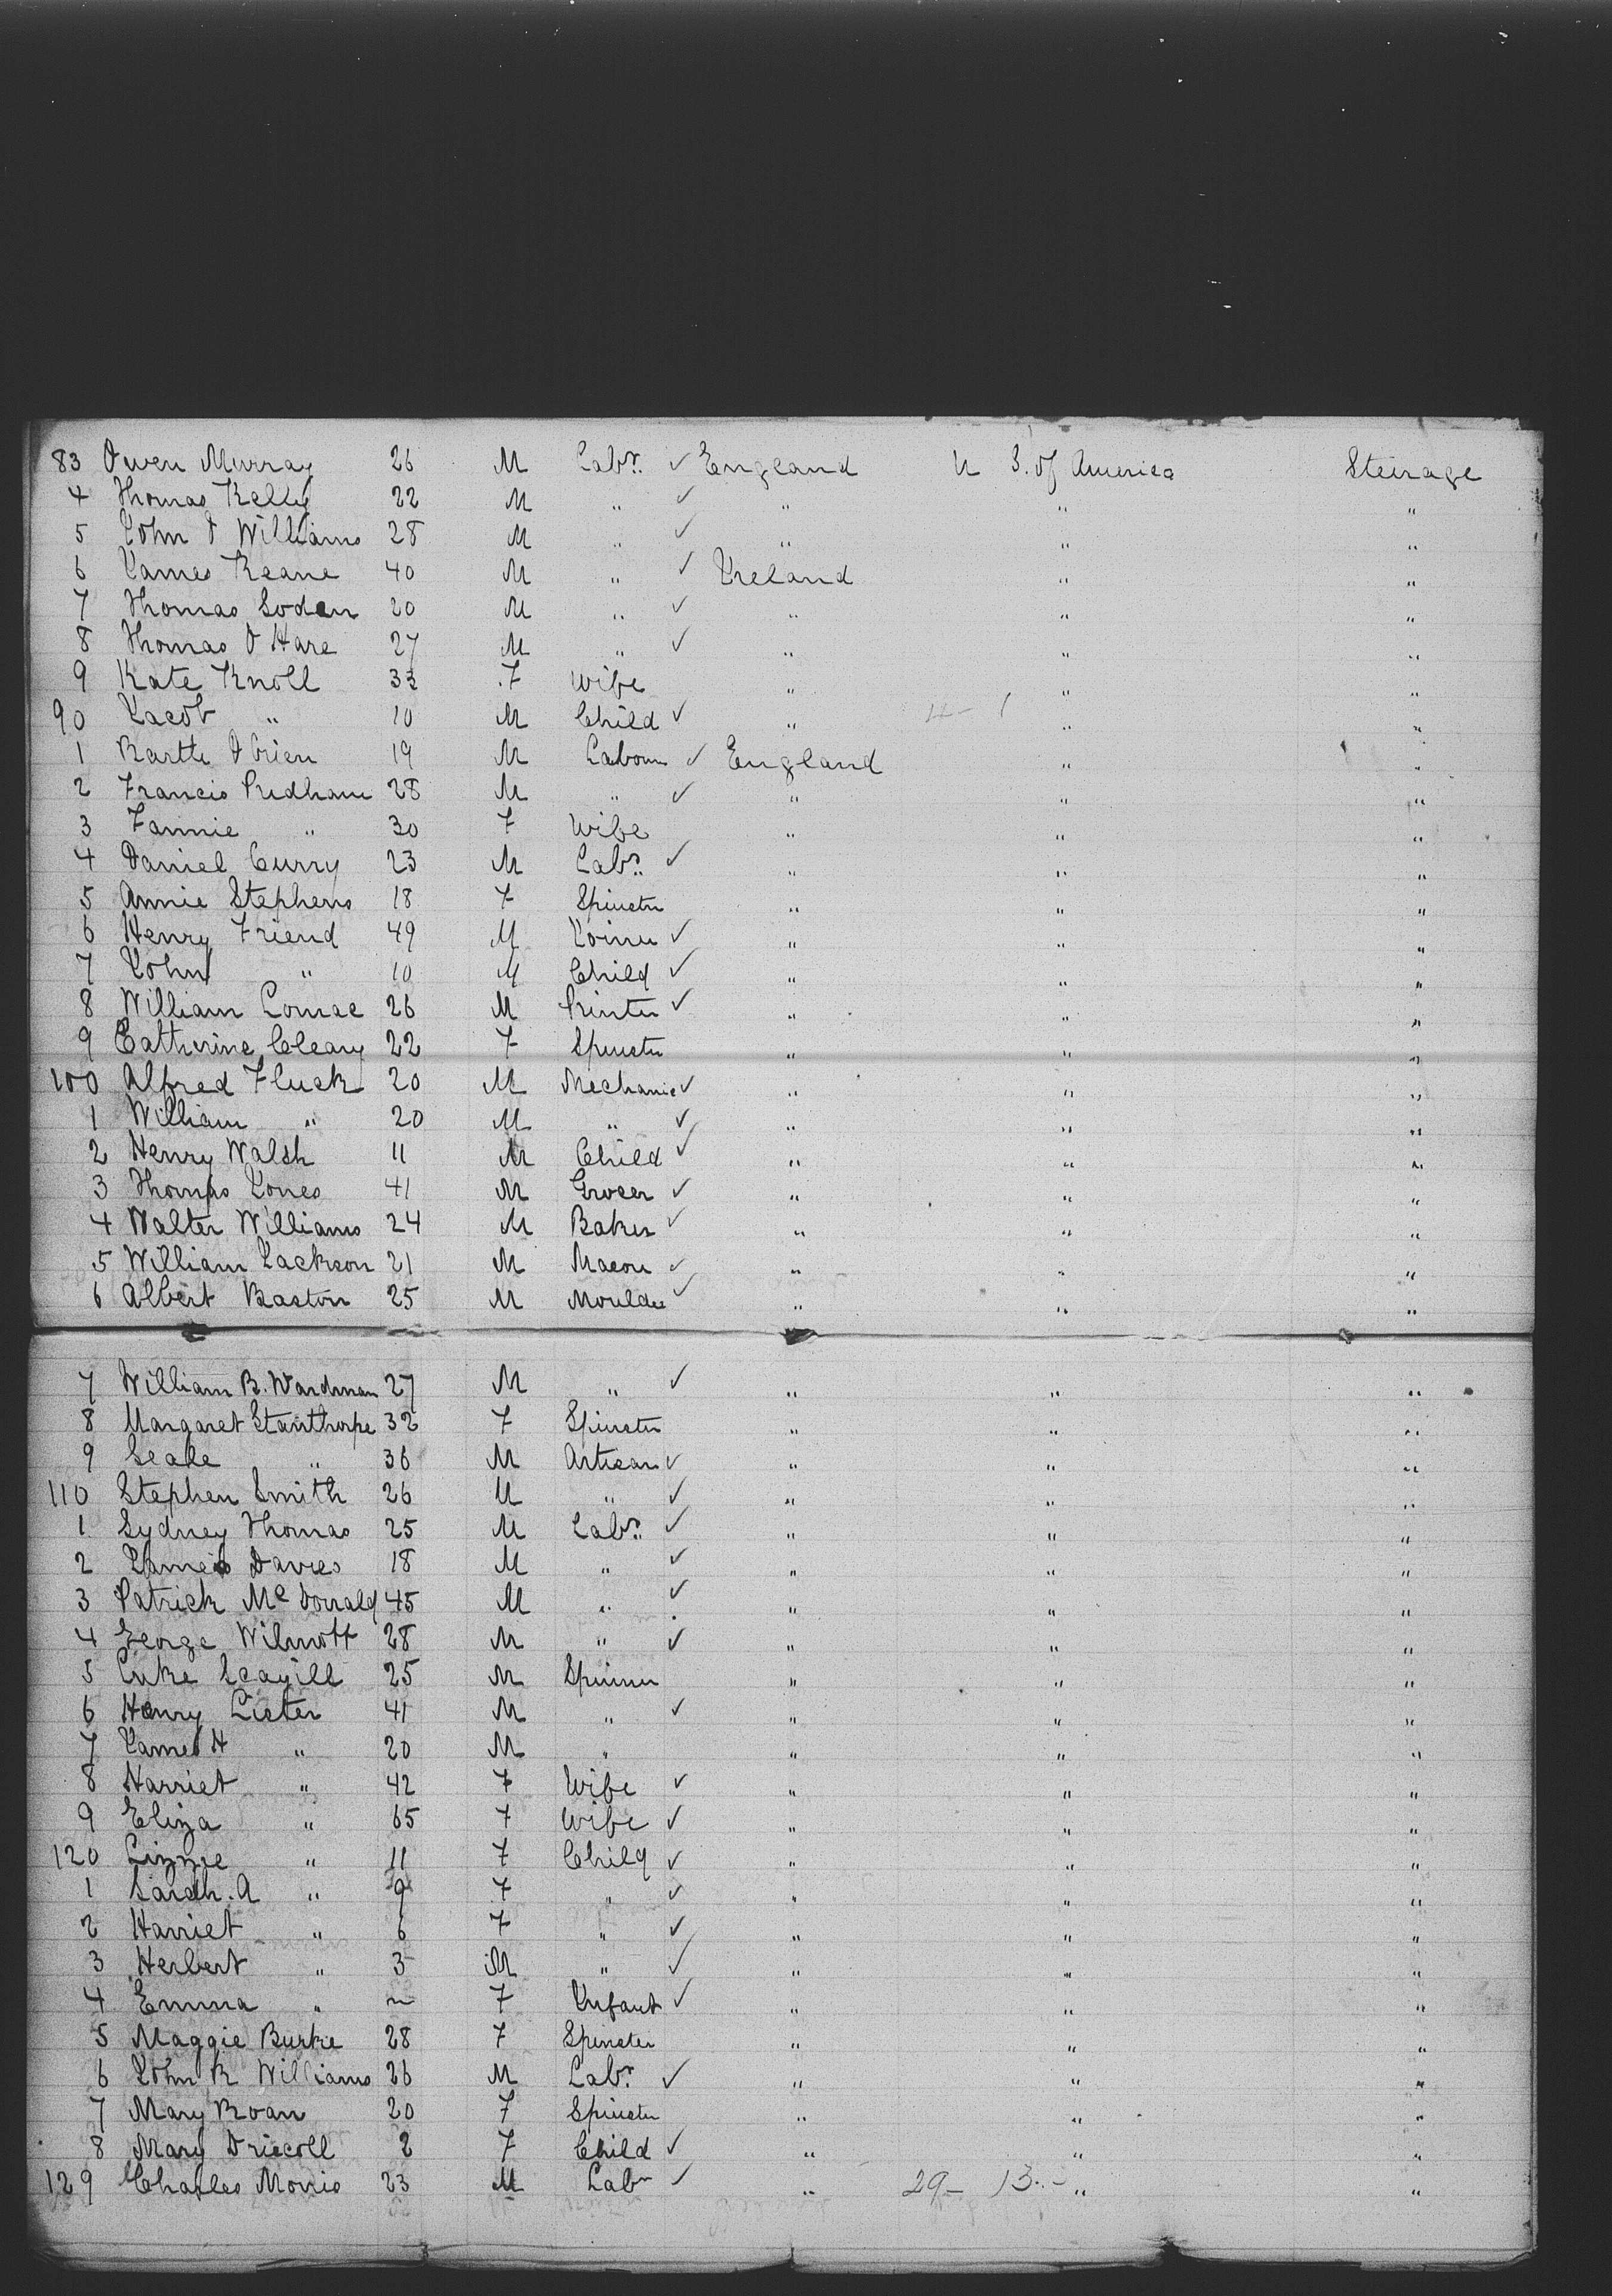 83 Owen Murray 26 M Labr. ✓ England U S. of America Steirage
4 Thomas Kelly 22 M " ✓ " " "
5 John O Williams 28 M " ✓ " " "
6 James Keane 40 M " ✓ Ireland " "
7 Thomas Soden 20 M " ✓ " " "
8 Thomas O Hare 27 M " ✓ " " "
9 Kate Knoll 33 F Wife " " "
90 Jacob " 10 M Child ✓ " 4 - 1 " "
1 Bartle OBrien 19 M Labour ✓ England " "
2 Francis Pridham 28 M " ✓ " " "
3 Fannie " 30 F Wife " " "
4 Daniel Curry 23 M Labr. ✓ " " "
5 Annie Stephens 18 F Spinster " " "
6 Henry Friend 49 M Joiner ✓ " " "
7 John " 10 M Child ✓ " " "
8 William Lomae 26 M Printer ✓ " " "
9 Catherine Cleary 22 F Spinster " " "
100 Alfred Fluck 20 M Mechanic ✓ " " "
1 William " 20 M " ✓ " " "
2 Henry Walsh 11 M Child ✓ " " "
3 Thomas Jones 41 M Grocer ✓ " " "
4 Walter Williams 24 M Baker ✓ " " "
5 William Jackson 21 M Mason ✓ " " "
6 Albert Baston 25 M Moulder ✓ " " "
7 William B. Wardman 27 M " ✓ " " "
8 Margaret Stanthorpe 32 F Spinster " " "
9 " 36 M Artisan ✓ " " "
110 Stephen Smith 26 M " ✓ " " "
1 Sydney Thomas 25 M Labr. ✓ " " "
2 James Davies 18 M " ✓ " " "
3 Patrick Mc Donald 45 M " ✓ " " "
4 George Wilmott 28 M " ✓ " " "
5 Luke Scagill 25 M Spinner " " "
6 Henry Lister 41 M " ✓ " " "
7 James H " 20 M " " " "
8 Harriet " 42 F Wife ✓ " " "
9 Eliza " 65 F Wife ✓ " " "
120 Lizzie " 11 F Child ✓ " " "
1 Sarah. A " 9 F " ✓ " " "
2 Harriet " 6 F " ✓ " " "
3 Herbert " 3 M " ✓ " " "
4 Emma " ~ F Infant ✓ " " "
5 Maggie Burke 28 F Spinster " " "
6 John R Williams 26 M Labr. ✓ " " "
7 Mary Roan 20 F Spinster " " "
8 Mary Driscoll 2 F Child ✓ " " "
129 Charles Morris 23 M Labr ✓ " 29 - 13 - " "